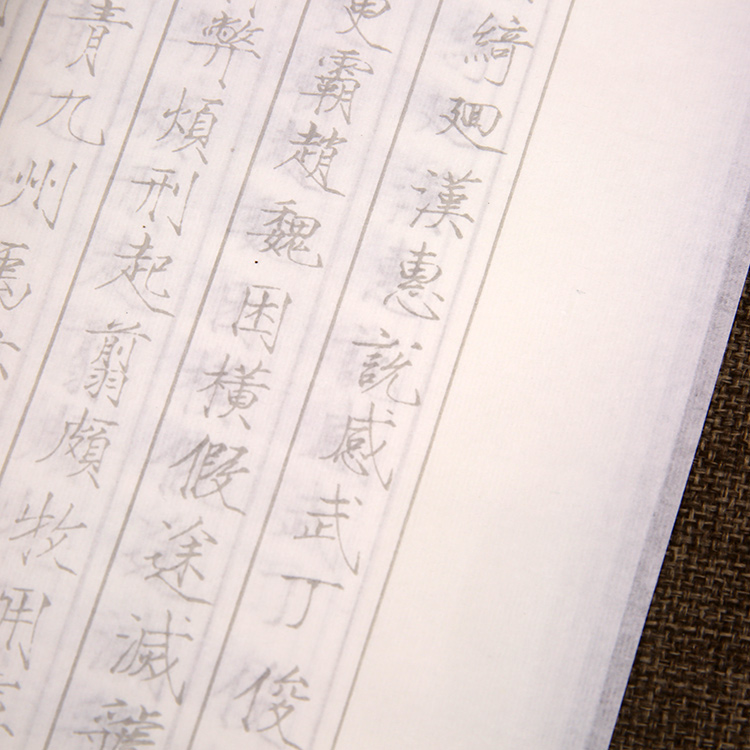 綺迴漢惠説感武丁俊
更霸趙魏困橫假途滅
弊煩刑起翦頗牧用
青九州禹